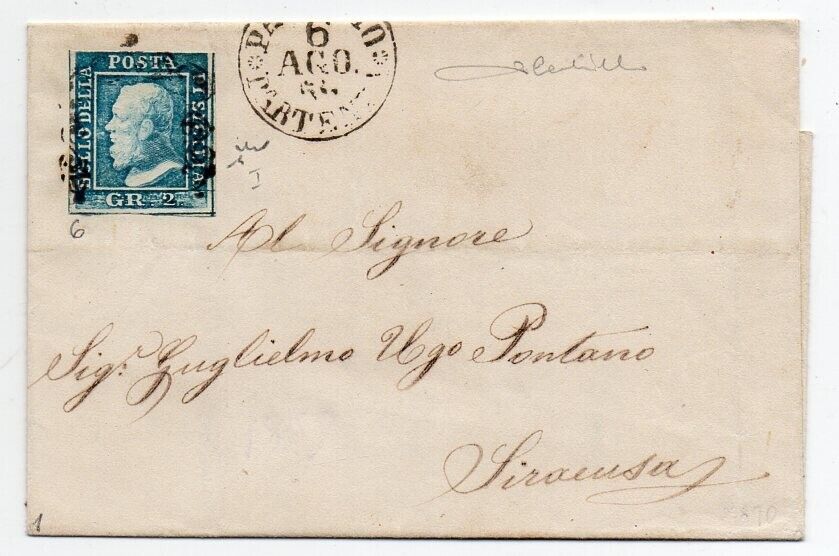 POSTA
BOLLO DELLA
DI SICILIA
GR. 2.
6
AGO.
PARTENZA
6
I
Al Signore
Sig.r Guglielmo Ugo Pontano
Siracusa
1